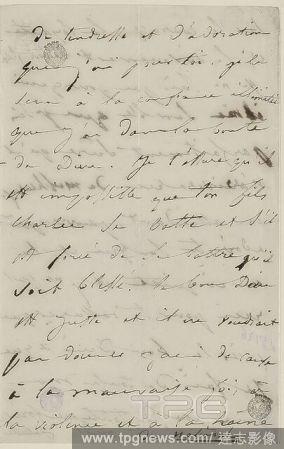 de tendresse et d'adoration
que j'ai pour toi. je la
à la confiance illimitée
que j'ai dans la bonté
de Dieu. Je t'assure qu'il
est impossible que ton fils
Charles se batte et s'il
est forcé de se battre qu'il
soit blessé. le bon Dieu
est juste et il ne voudrait
pas donner gain de cause
à la mauvaise foi à
la violence et à la haine
TPG
www.tpgimages.com 達志影像